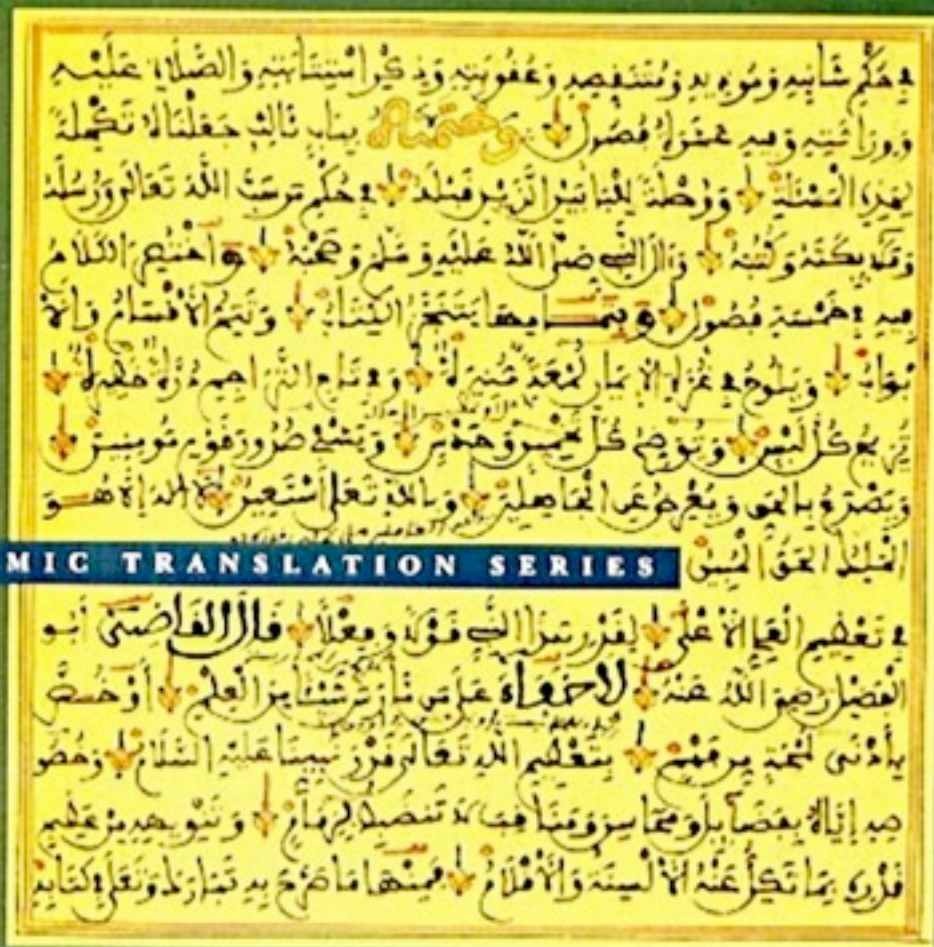 في حكم شانئه ومؤذيه ومتنقصه وعقوبته وذكر استتابته والصلاة عليه
ووراثته وفيه عشرة فصول وختمناه بباب ثالث جعلناه تكملة
لهذه المسئلة ووصلة للبابين الذين قبله في حكم من سب الله تعالى ورسله
وملايكته وكتبه وءال النبي صلى الله عليه وسلم وصحبه الكلام
فيه في خمسة فصول وبتمامها ينتجز الكتاب وتتم الأقسام والأ
بواب ويلوح في غرة الإيمان لمعة منيرة وفي تاج التراجم درة خطيرة
تزيح كل لبس وتوضح كل تخمين وحدس وتشفي صدور قوم مومنين
وتصدع بالحق وتعرض عن الجاهلين وبالله تعلى أستعين لا اله إلا هو
الملك الحق المبين
MIC TRANSLATION SERIES
في تعظيم العلي الأعلى لقدر هذا النبي قولا وفعلا قال القاضي أبو
الفضل رضي الله عنه لا خفاء على من مارس شيئا من العلم أو خص
بأدنى لمحة من فهم بتعظيم الله تعالى قدر نبينا عليه السلام وخصو
صه إياه بفضايل ومحاسن ومناقب لا تنضبط لزمام وتنويهه من عظيم
قدره بما تكل عنه الألسنة والأقلام فمنها ما صرح به تبارك وتعلى في كتابه